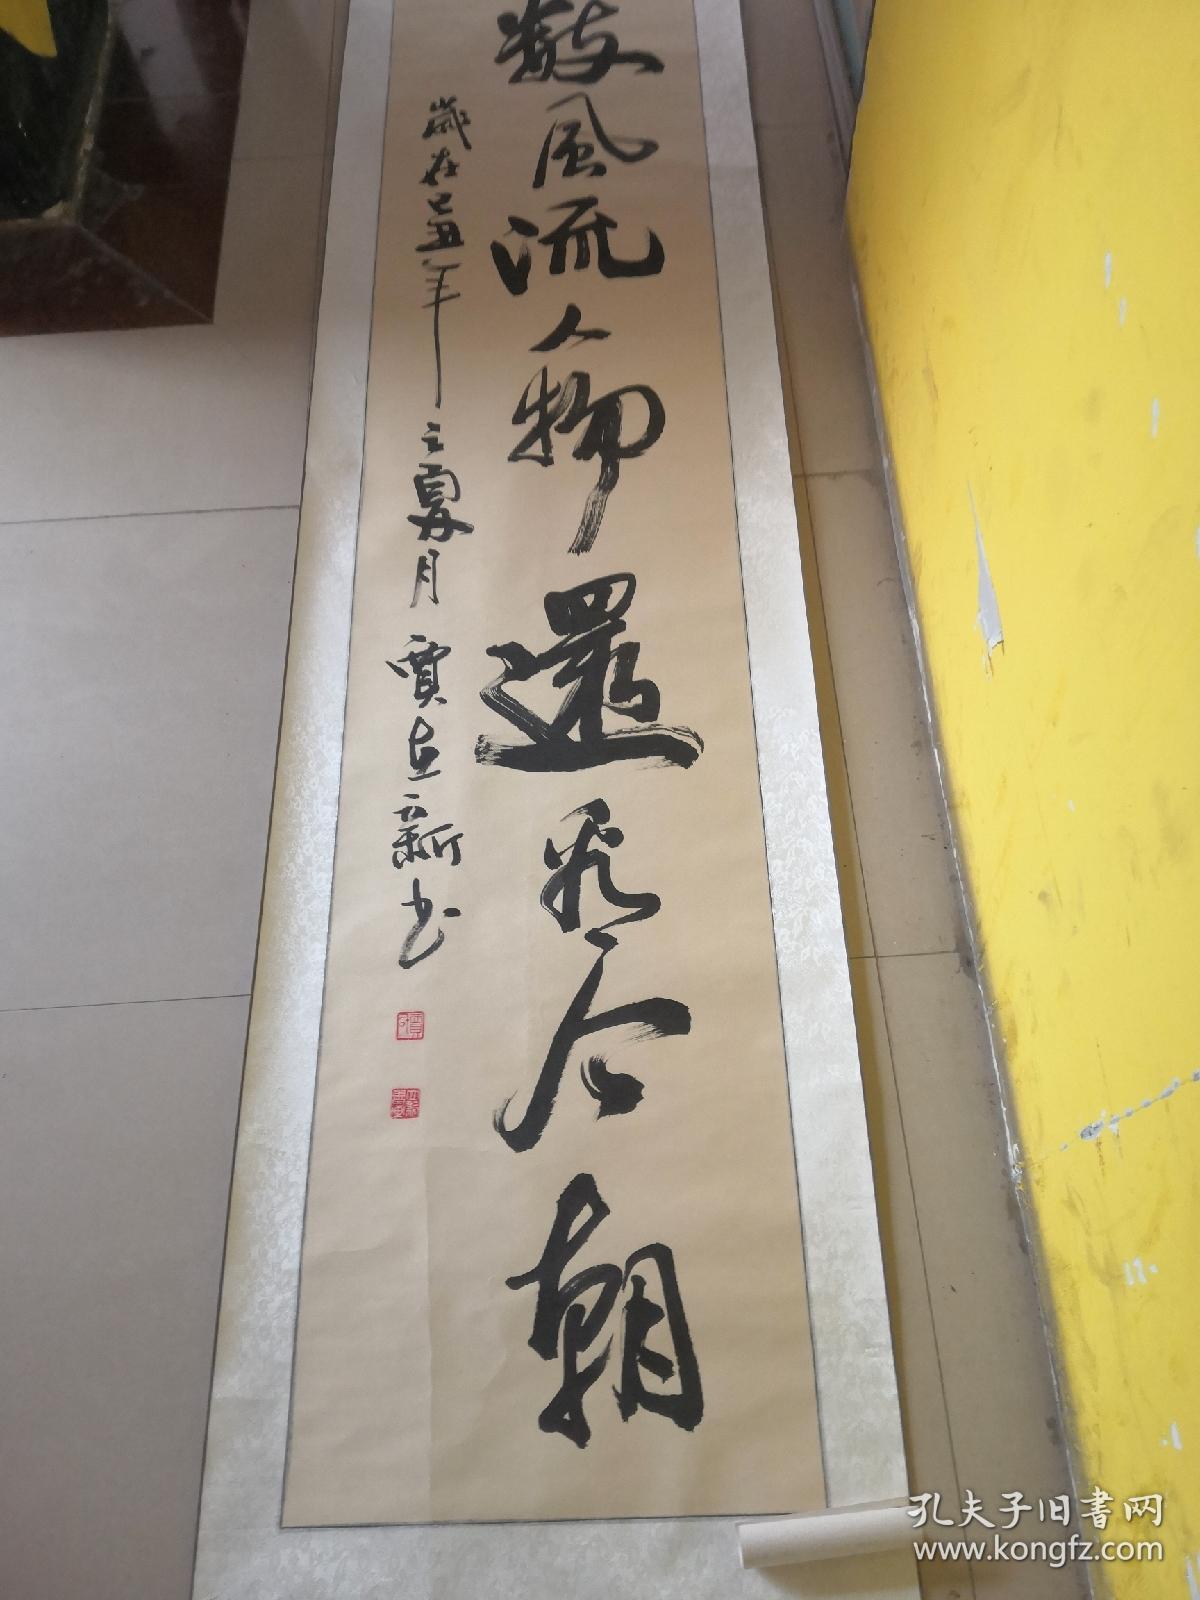 数风流人物還看今朝
歲在己丑年之夏月賈立新书
孔夫子旧書网
www.kongfz.com